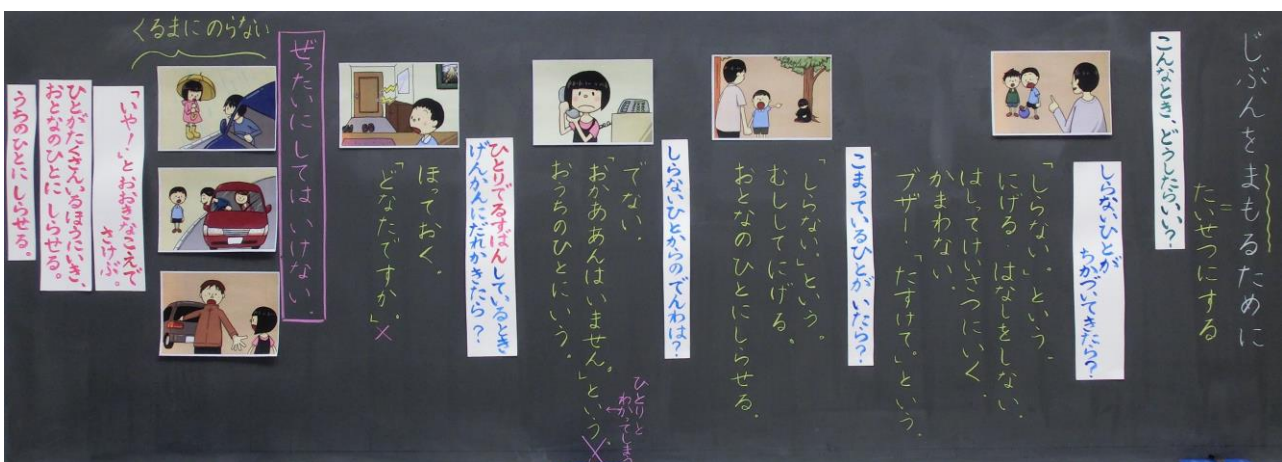 じぶんをまもるために
=
たいせつにする
こんなとき、どうしたらいい?
しらないひとが
ちかづいてきたら?
「しらない。」という。
にげる。はなしをしない。
はしってけいさつにいく。
かまわない。
ブザー・「たすけて。」という。
こまっているひとが いたら?
「しらない」という。
むししてにげる。
おとなのひとにしらせる。
しらないひとからのでんわは?
でない。
「おかああんはいません。」という。×
ひとりと
わかってしまう
おうちのひとにいう。
ひとりでるすばんしているとき
げんかんにだれかきたら?
ほっておく。
「どなたですか。」×
ぜったいに してはいけない。
くるまにのらない
「いや!」とおおきなこえで
さけぶ。
ひとがたくさんいるほうにいき、
おとなのひとに しらせる。
うちのひとにしらせる。